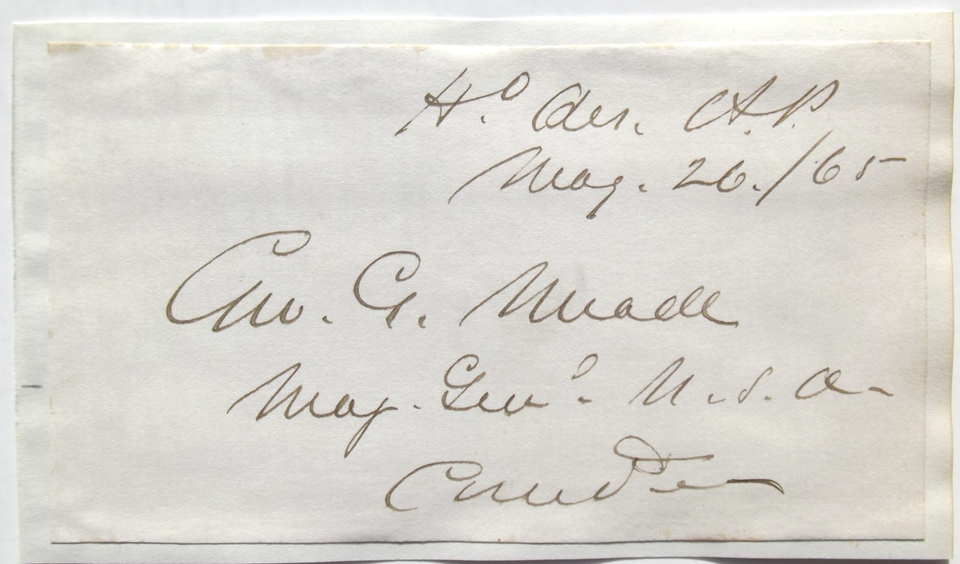 Hd. Qrs. A.P.
May. 26./65
Geo. G. Meade
Maj. Genl. U.S.A.
Comdg